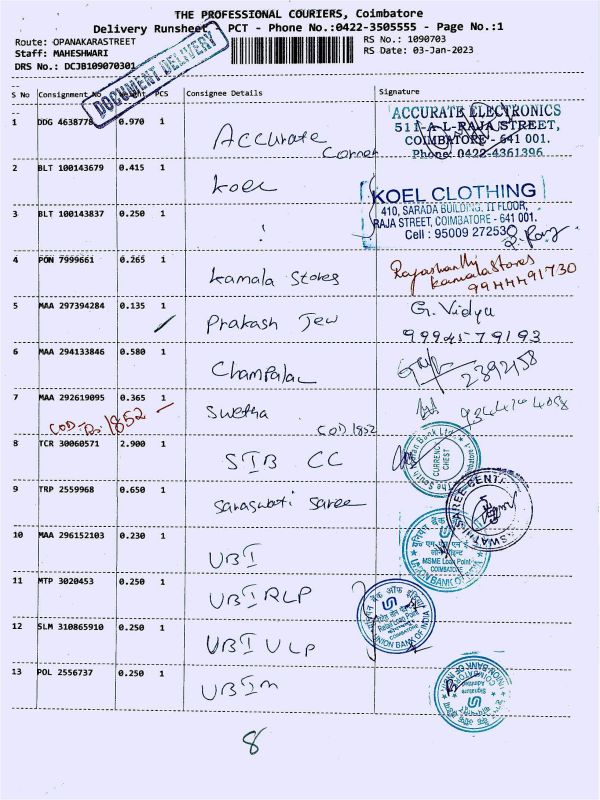 THE PROFESSIONAL COURIERS, Coimbatore
Delivery Runsheet, PCT - Phone No.:0422-3505555 - Page No.:1
Route: OPANAKARASTREET
RS No.: 1090703
Staff: MAHESHWARI
RS Date: 03-Jan-2023
DRS No.: DCJB109070301
DOCUMENT DELIVERY
S No Consignment No PCS Consignee Details Signature
1 DDG 4638778 0.970 1 Accurate Corner
ACCURATE ELECTRONICS
511-A L-RAJA STREET,
COIMBATORE - 641 001.
Phone: 0422-4361396
2 BLT 100143679 0.415 1 Koel
KOEL CLOTHING
410, SARADA BUILDING, II FLOOR,
RAJA STREET, COIMBATORE - 641 001.
Cell : 95009 27253
3 BLT 100143837 0.250 1
4 PON 7999661 0.265 1 Kamala Stores
Kamala Stores
9944491730
5 MAA 297394284 0.135 1 Prakash Jew
G. Vidya
9994579193
6 MAA 294133846 0.580 1 Champalal
2392158
7 MAA 292619095 0.365 1 Swetha
COD Rs 1852
COD 1852
8 TCR 30060571 2.900 1 SIB CC
The South Indian Bank Ltd.
CURRENCY
CHEST
9 TRP 2559968 0.650 1 Saraswati Saree
10 MAA 296152103 0.230 1 UBI
MSME Loan Point
COIMBATORE
UNION BANK OF INDIA
11 MTP 3020453 0.250 1 UBI RLP
Retail Loan Point
COIMBATORE
UNION BANK OF INDIA
12 SLM 310865910 0.250 1 UBI ULP
13 POL 2556737 0.250 1 UBI m
8